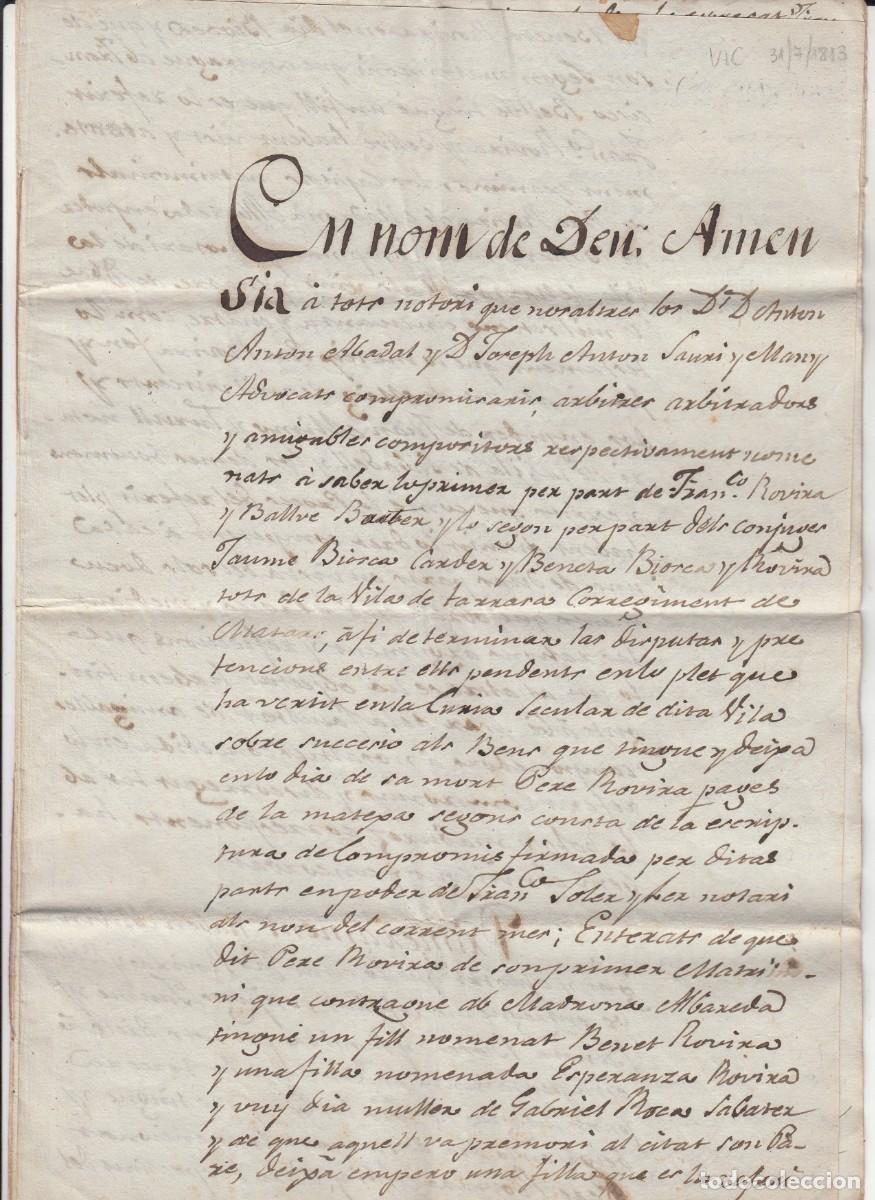 VIC 31/7/1813
En nom de Deu. Amen
Sia à tots notori que nosaltres los Drs Dn Anton
Anton Abadal y Dn Joseph Anton Sauri y Many
Advocats compromisaris, arbitres arbitradors
y amigables compositors respectivament nome
nats à saber lo primer per part de Franco. Rovira
y Ballve Barber y lo segon per part dels conjuges
Jaume Biosca Carder y Beneta Biosca y Rovira
tots de la Vila de tarrasa Corregiment de
Mataró, à fi de terminar las disputas y pre
tencions entre ells pendents en lo plet que
ha vertit en la Curia secular de dita Vila
sobre succesio als Bens que tingue y deixà
en lo dia de sa mort Pere Rovira pages
de la matexa segons consta de la escrip-
tura de Compromis firmada per ditas
parts en poder de Franco Soler y Ler notari
als nou del corrent mes; Enterats de que
dit Pere Rovira de son primer Matrimo-
ni que contragué ab Madrona Albareda
tingué un fill nomenat Benet Rovira
y una filla nomenada Esperanza Rovira
y vuy dia muller de Gabriel Roca Sabater
y de que aquell va premori al citat son Pa-
re, deixà empero una filla que es la
todocoleccion